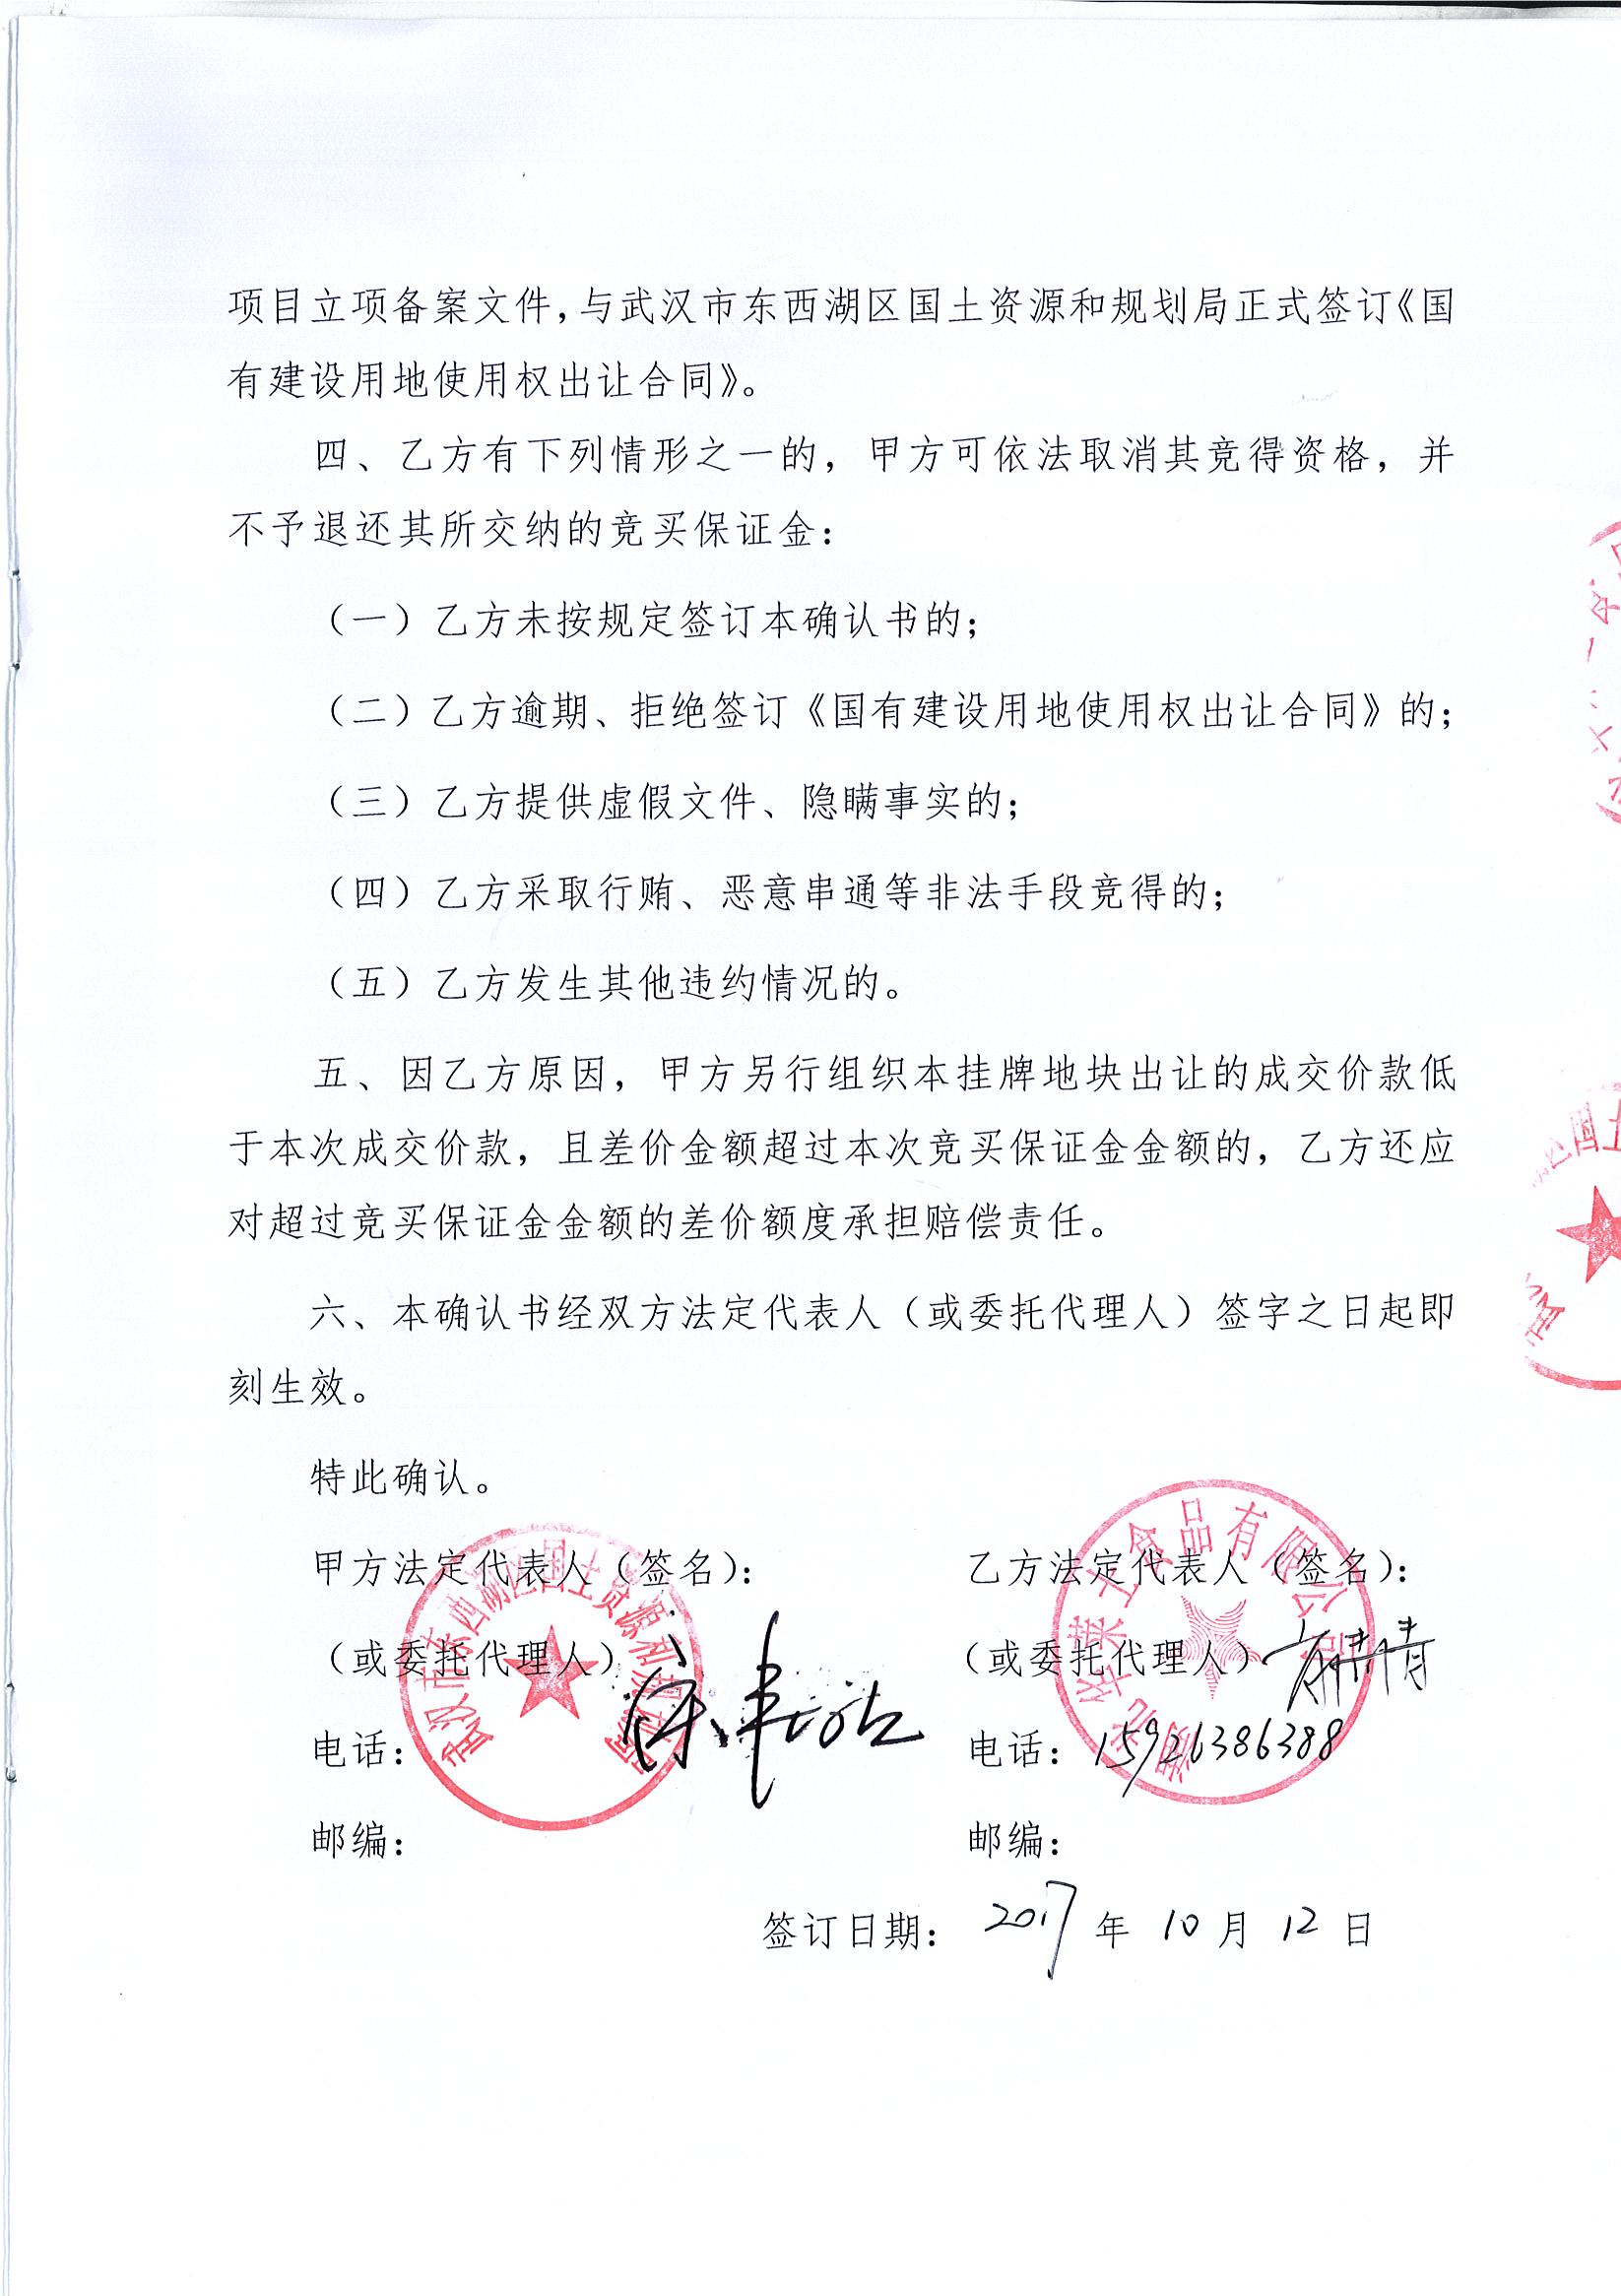 项目立项备案文件，与武汉市东西湖区国土资源和规划局正式签订《国
有建设用地使用权出让合同》。
四、乙方有下列情形之一的，甲方可依法取消其竞得资格，并
不予退还其所交纳的竞买保证金：
（一）乙方未按规定签订本确认书的；
（二）乙方逾期、拒绝签订《国有建设用地使用权出让合同》的；
（三）乙方提供虚假文件、隐瞒事实的；
（四）乙方采取行贿、恶意串通等非法手段竞得的；
（五）乙方发生其他违约情况的。
五、因乙方原因，甲方另行组织本挂牌地块出让的成交价款低
于本次成交价款，且差价金额超过本次竞买保证金金额的，乙方还应
对超过竞买保证金金额的差价额度承担赔偿责任。
六、本确认书经双方法定代表人（或委托代理人）签字之日起即
刻生效。
特此确认。
甲方法定代表人（签名）： 乙方法定代表人（签名）：
（或委托代理人） （或委托代理人）
电话： 电话：15926386388
邮编： 邮编：
签订日期： 2017 年 10 月 12 日
武汉市东西湖区国土资源和规划局
湖北华莱士食品有限公司
区国土